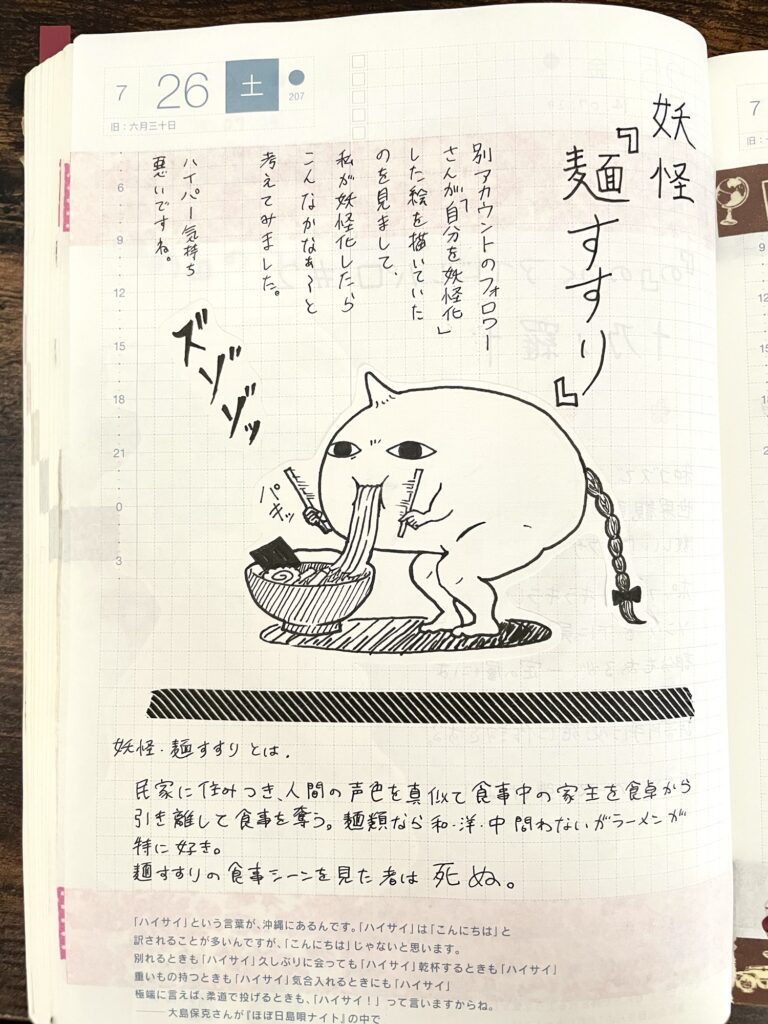 7 26 土
207
旧：六月三十日
妖怪
『麺すすり』
別アカウントのフォロワー
さんが「自分を妖怪化」
した絵を描いていた
のを見まして、
私が妖怪化したら
こんなかなぁ〜と
考えてみました。
ハイパー気持ち
悪いですね。
6
9
12
15
18
21
0
3
ズゾゾゾッ
パキッ
妖怪・麺すすりとは.
民家に住みつき、人間の声色を真似て食事中の家主を食卓から
引き離して食事を奪う。麺類なら和・洋・中問わないがラーメンが
特に好き。
麺すすりの食事シーンを見た者は死ぬ。
「ハイサイ」という言葉が、沖縄にあるんです。「ハイサイ」は「こんにちは」と
訳されることが多いんですが、「こんにちは」じゃないと思います。
別れるときも「ハイサイ」久しぶりに会っても「ハイサイ」乾杯するときも「ハイサイ」
重いもの持つときも「ハイサイ」気合入れるときにも「ハイサイ」
極端に言えば、柔道で投げるときも、「ハイサイ！」って言いますからね。
――大島保克さんが『ほぼ日島唄ナイト』の中で
7
9